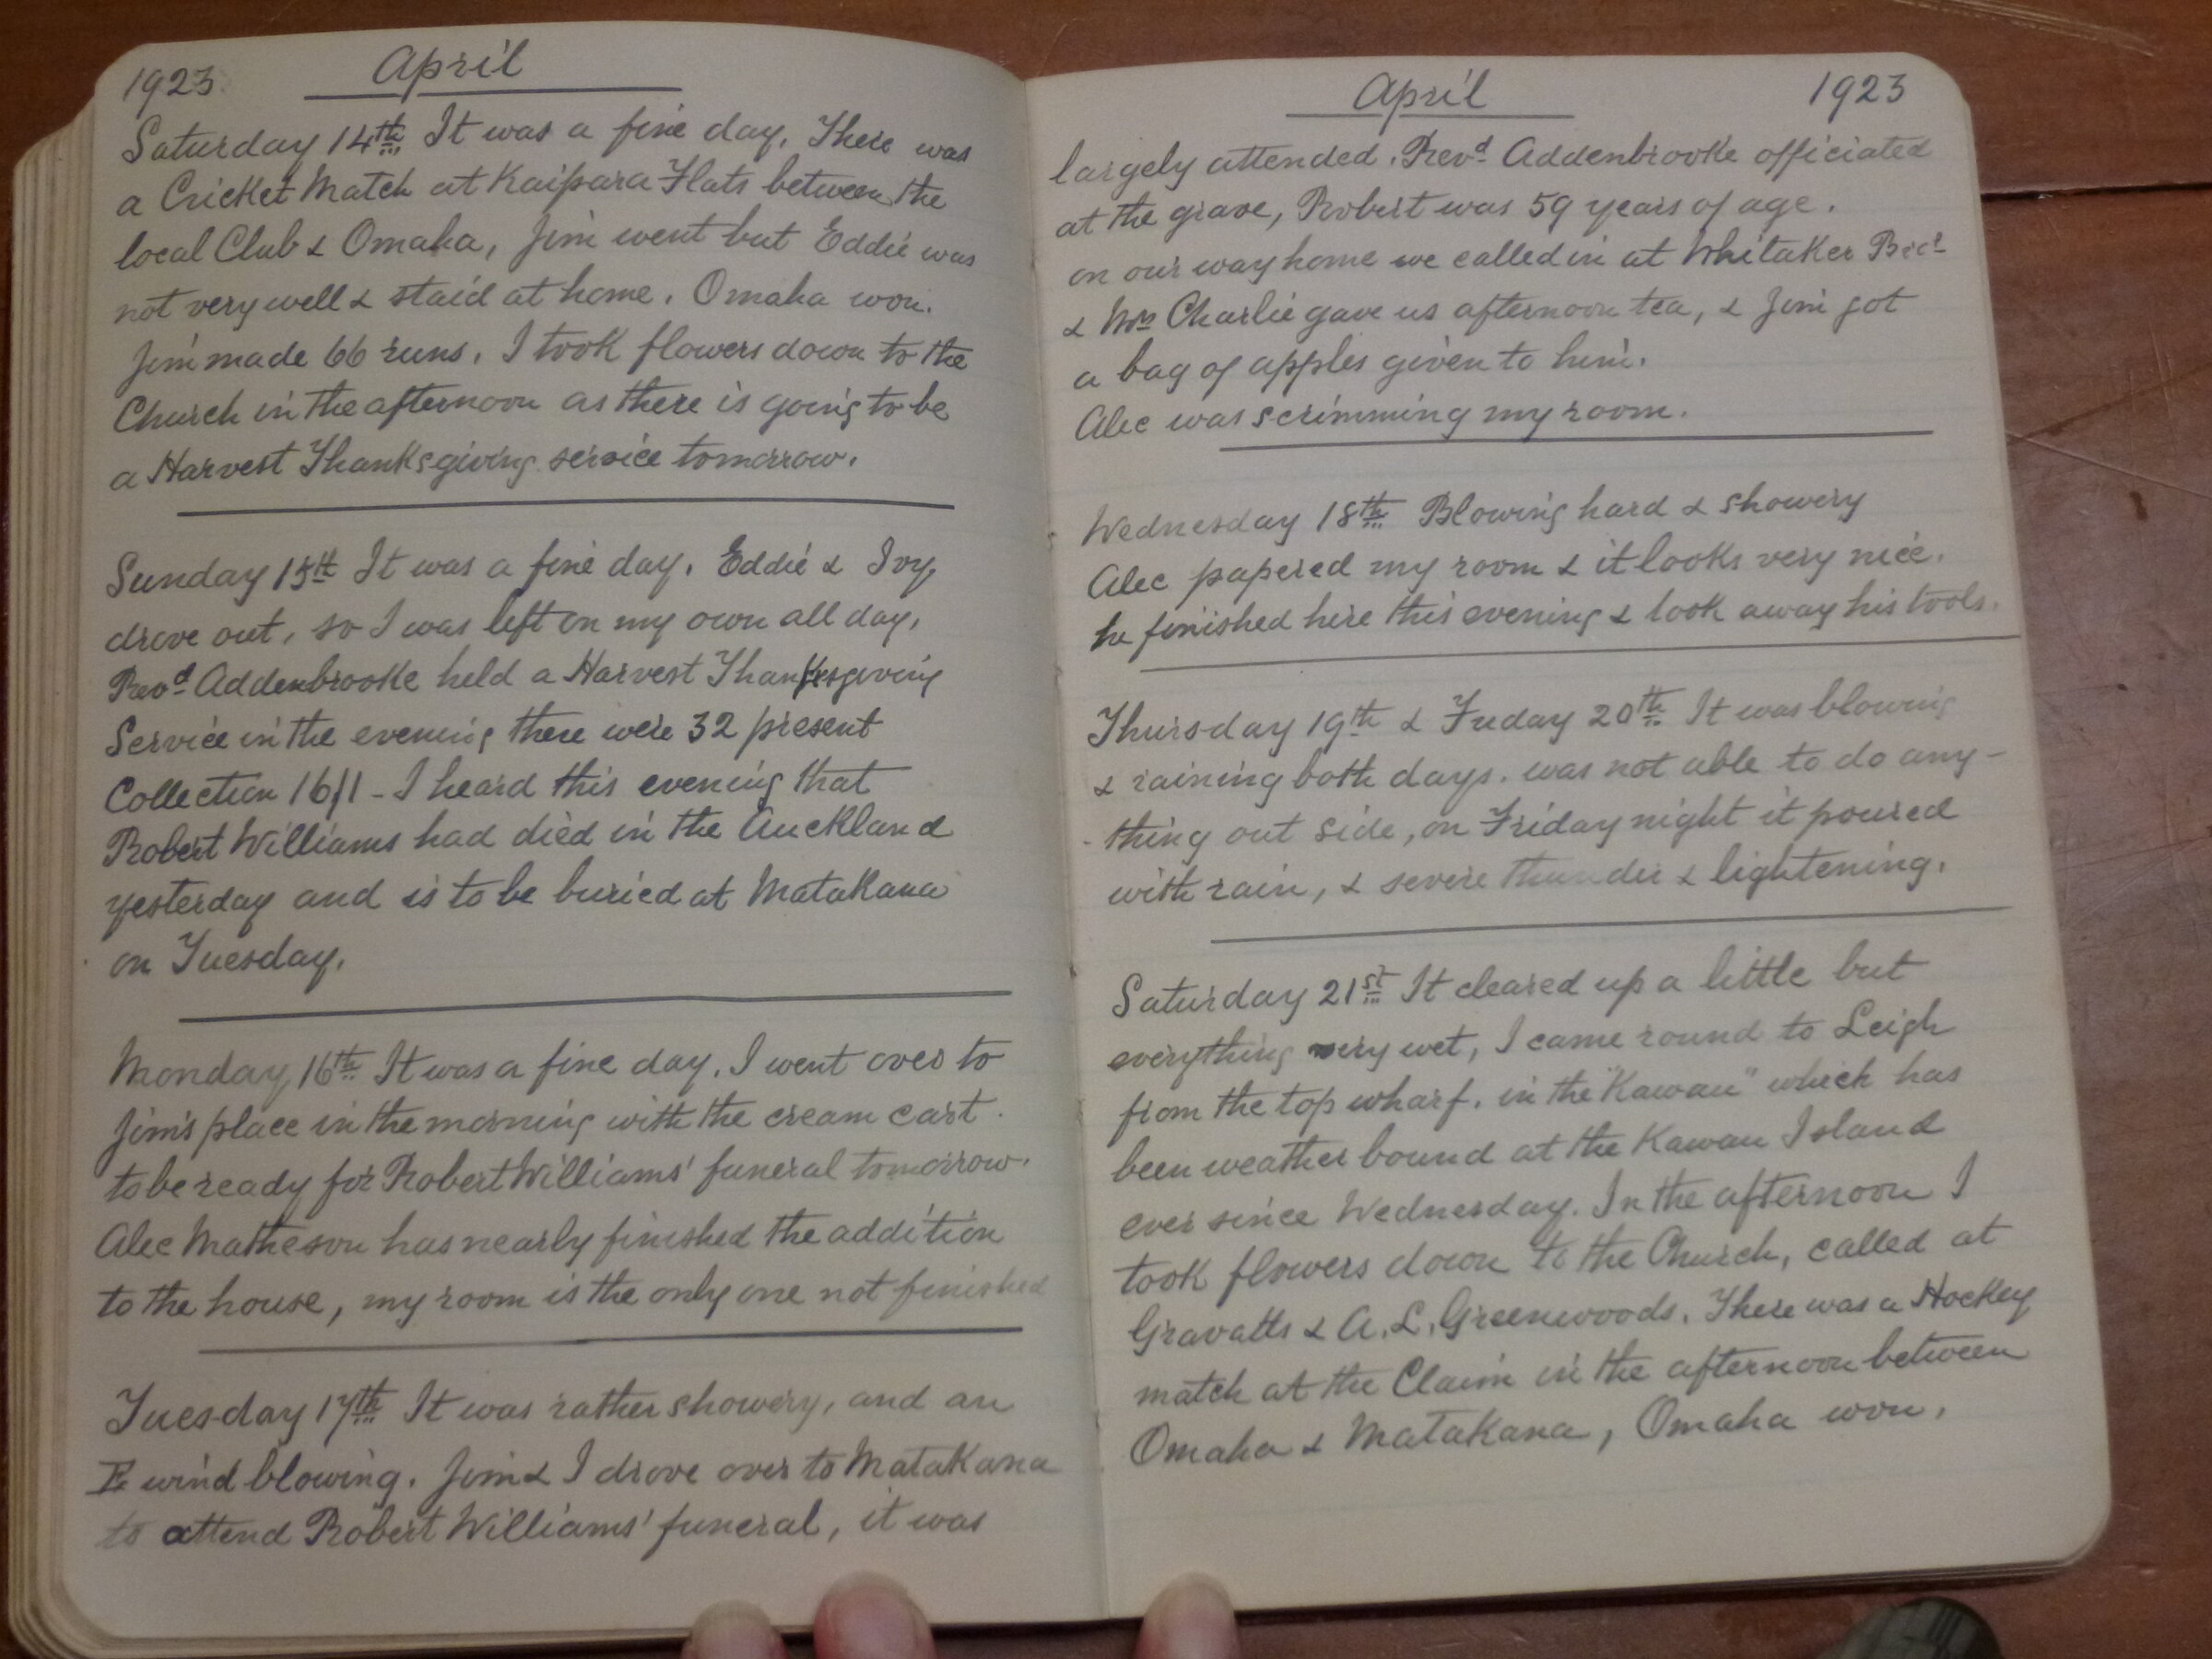 1923 April
Saturday 14th It was a fine day. There was
a Cricket Match at Kaipara Flats between the
local Club & Omaha, Jim went but Eddie was
not very well & staid at home. Omaha won.
Jim made 66 runs. I took flowers down to the
Church in the afternoon as there is going to be
a Harvest Thanksgiving service tomorrow.
Sunday 15th It was a fine day. Eddie & Ivy
drove out, so I was left on my own all day.
Revd Addenbrooke held a Harvest Thanksgiving
Service in the evening there were 32 present
Collection 16/1 - I heard this evening that
Robert Williams had died in the Auckland
yesterday and is to be buried at Matakana
on Tuesday.
Monday 16th It was a fine day. I went over to
Jim's place in the morning with the cream cart.
to be ready for Robert Williams' funeral tomorrow.
Alec Matheson has nearly finished the addition
to the house, my room is the only one not finished
Tuesday 17th It was rather showery, and an
E wind blowing. Jim & I drove over to Matakana
to attend Robert Williams' funeral, it was
April 1923
largely attended. Revd Addenbrooke officiated
at the grave, Robert was 59 years of age.
on our way home we called in at Whitaker Bros
& Mrs Charlie gave us afternoon tea, & Jim got
a bag of apples given to him.
Alec was scrimming my room.
Wednesday 18th Blowing hard & showery
Alec papered my room & it looks very nice.
he finished here this evening & took away his tools.
Thursday 19th & Friday 20th It was blowing
& raining both days. was not able to do any-
-thing out side, on Friday night it poured
with rain, & severe thunder & lightening.
Saturday 21st It cleared up a little but
everything very wet, I came round to Leigh
from the top wharf. in the "Kawau" which has
been weather bound at the Kawau Island
ever since Wednesday. In the afternoon I
took flowers down to the Church, called at
Gravatts & A. L. Greenwoods. There was a Hockey
match at the Claim in the afternoon between
Omaha & Matakana, Omaha won.